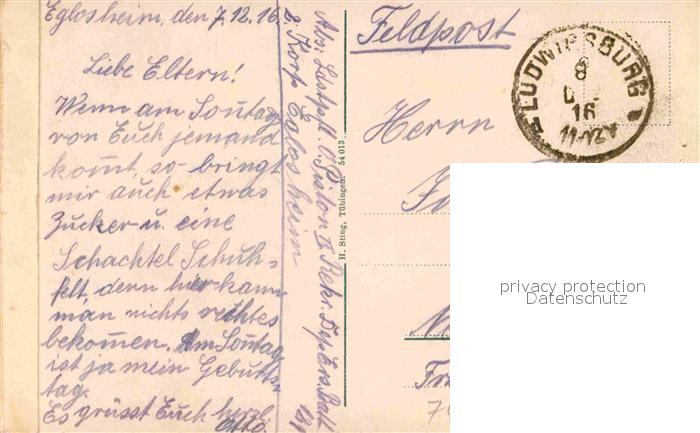 Eglosheim, den 7.12.16.
Liebe Eltern!
Wenn am Sontag
von Euch jemand
komt, so bringt
mir auch etwas
Zucker u. eine
Schachtel Schuh=
fett, denn hier kann
man nichts rechtes
bekomen. Am Sontag
ist ja mein Geburts
tag.
Es grüsst Euch herzl.
Otto.
Abs.
2. Korp Eglosheim
H. Sting, Tübingen. 54013
Feldpost
LUDWIGSBURG 1
8
16
11-12V
Herrn
privacy protection
Datenschutz